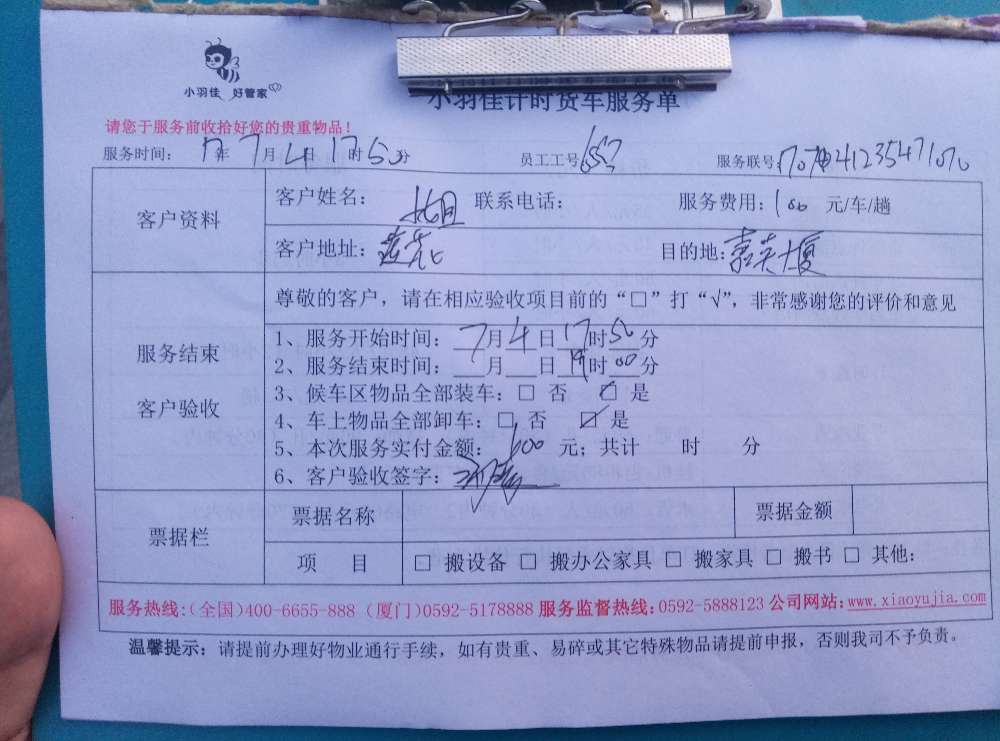 小羽佳 好管家
小羽佳计时货车服务单
请您于服务前收拾好您的贵重物品!
服务时间: 17年7月4日17时50分 员工工号: 服务联号:
客户资料
客户姓名: 联系电话: 服务费用:100 元/车/趟
客户地址:莲花 目的地:嘉英大厦
尊敬的客户,请在相应验收项目前的“□”打“√”,非常感谢您的评价和意见
服务结束
客户验收
1、服务开始时间:7月4日17时50分
2、服务结束时间:___月___日19时00分
3、候车区物品全部装车:□ 否 ☑ 是
4、车上物品全部卸车:□ 否 ☑ 是
5、本次服务实付金额:600 元;共计 时 分
6、客户验收签字:
票据栏
票据名称 票据金额
项 目 □ 搬设备 □ 搬办公家具 □ 搬家具 □ 搬书 □ 其他:
服务热线:(全国)400-6655-888 (厦门)0592-5178888 服务监督热线:0592-5888123 公司网站:www.xiaoyujia.com
温馨提示:请提前办理好物业通行手续,如有贵重、易碎或其它特殊物品请提前申报,否则我司不予负责。